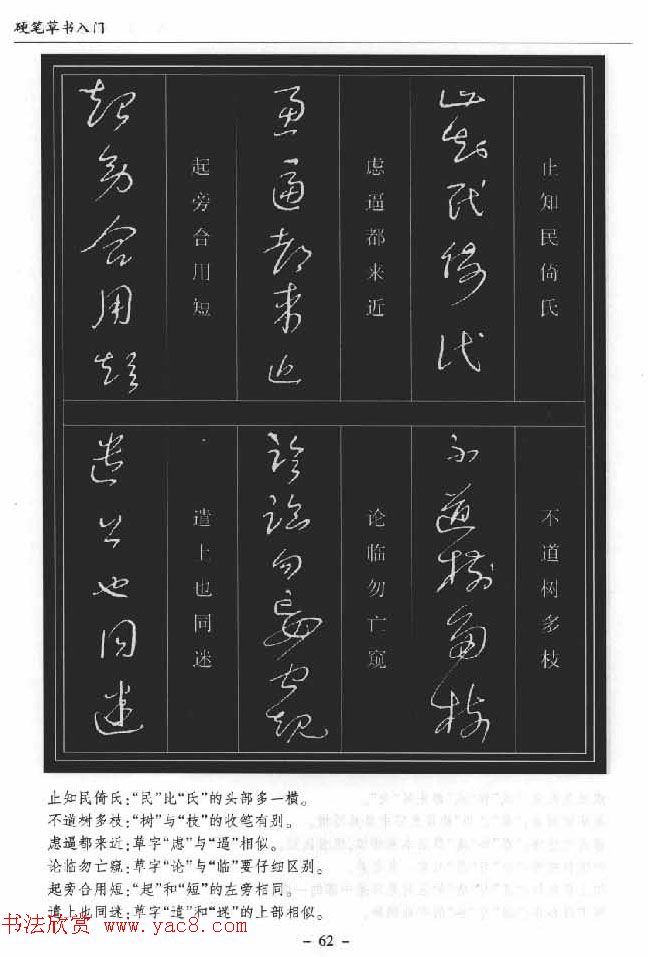 硬笔草书入门
止知民倚氏
不道树多枝
虑逼都来近
论临勿亡窥
起旁合用短
遣上也同迷
止知民倚氏:“民”比“氏”的头部多一横。
不道树多枝:“树”与“枝”的收笔有别。
虑逼都来近:草字“虑”与“逼”相似。
论临勿亡窥:草字“论”与“临”要仔细区别。
起旁合用短:“起”和“短”的左旁相同。
遣上也同迷:草字“遣”和“迷”的上部相似。
书法欣赏 www.yac8.com
- 62 -